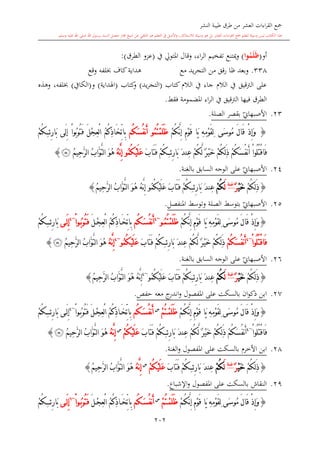 جمع القراءات العشر من طرق طيبة النشر
أو(ظَلَمُوا) ويمتنع تفخيم الراء، وقال المتولي في (عزو الطرق):
٣٣٨. وبعد ظا رقق من التجريد مع هداية كاف بخلفه وقع
على الترقيق في اللام جاء في اللام كتاب (التجريد) وكتاب (الهداية) و(الكافي) بخلفه، وهذه
الطرق فيها الترقيق في الراء المضمومة فقط.
٢٣. الأصبهانيّ بقصر الصلة.
﴿ وَإِذۡ قَالَ مُوسَىٰ لِقَوۡمِهِۦ يَٰقَوۡمِ إِنَّكُمۡ ظَلَمۡتُمۡ أَنفُسَكُم بِٱتِّخَاذِكُمُ ٱلۡعِجۡلَ فَتُوبُوٓاْ إِلَىٰ بَارِئِكُمۡ
فَٱقۡتُلُوٓاْ أَنفُسَكُمۡ ذَٰلِكُمۡ خَيۡرٞ لَّكُمۡ عِندَ بَارِئِكُمۡ فَتَابَ عَلَيۡكُمۡۚ إِنَّهُۥ هُوَ ٱلتَّوَّابُ ٱلرَّحِيمُ ﴾
٢٤. الأصبهانيّ على الوجه السابق بالغنة.
﴿ ذَٰلِكُمۡ خَيۡرٞ لَّكُمۡ عِندَ بَارِئِكُمۡ فَتَابَ عَلَيۡكُمُوٓ إِنَّهُۥ هُوَ ٱلتَّوَّابُ ٱلرَّحِيمُ ﴾
٢٥. الأصبهانيّ بتوسط الصلة وتوسط المنفصل.
﴿ وَإِذۡ قَالَ مُوسَىٰ لِقَوۡمِهِۦ يَٰقَوۡمِ إِنَّكُمۡ ظَلَمۡتُمُوٓ أَنفُسَكُم بِٱتِّخَاذِكُمُ ٱلۡعِجۡلَ فَتُوبُوٓاْ إِلَىٰ بَارِئِكُمۡ
فَٱقۡتُلُوٓاْ أَنفُسَكُمۡ ذَٰلِكُمۡ خَيۡرٞ لَّكُمۡ عِندَ بَارِئِكُمۡ فَتَابَ عَلَيۡكُمُوٓ إِنَّهُۥ هُوَ ٱلتَّوَّابُ ٱلرَّحِيمُ ﴾
٢٦. الأصبهانيّ على الوجه السابق بالغنة.
﴿ ذَٰلِكُمۡ خَيۡرٞ لَّكُمۡ عِندَ بَارِئِكُمۡ فَتَابَ عَلَيۡكُمُوٓ إِنَّهُۥ هُوَ ٱلتَّوَّابُ ٱلرَّحِيمُ ﴾
٢٧. ابن ذكوان بالسكت على المفصول واندرج معه حفص.
﴿ وَإِذۡ قَالَ مُوسَىٰ لِقَوۡمِهِۦ يَٰقَوۡمِ إِنَّكُمۡ ظَلَمۡتُمۡ أَنفُسَكُم بِٱتِّخَاذِكُمُ ٱلۡعِجۡلَ فَتُوبُوٓاْ إِلَىٰ بَارِئِكُمۡ
فَٱقۡتُلُوٓاْ أَنفُسَكُمۡ ذَٰلِكُمۡ خَيۡرٞ لَّكُمۡ عِندَ بَارِئِكُمۡ فَتَابَ عَلَيۡكُمۡ إِنَّهُۥ هُوَ ٱلتَّوَّابُ ٱلرَّحِيمُ ﴾
٢٨. ابن الأخرم بالسكت على المفصول والغنة.
﴿ ذَٰلِكُمۡ خَيۡرٞ لَّكُمۡ عِندَ بَارِئِكُمۡ فَتَابَ عَلَيۡكُمۡ إِنَّهُۥ هُوَ ٱلتَّوَّابُ ٱلرَّحِيمُ ﴾
٢٩. النقاش بالسكت على المفصول والإشباع.
﴿ وَإِذۡ قَالَ مُوسَىٰ لِقَوۡمِهِۦ يَٰقَوۡمِ إِنَّكُمۡ ظَلَمۡتُمۡ أَنفُسَكُم بِٱتِّخَاذِكُمُ ٱلۡعِجۡلَ فَتُوبُوٓاْ إِلَىٰ بَارِئِكُمۡ
٢٠٢